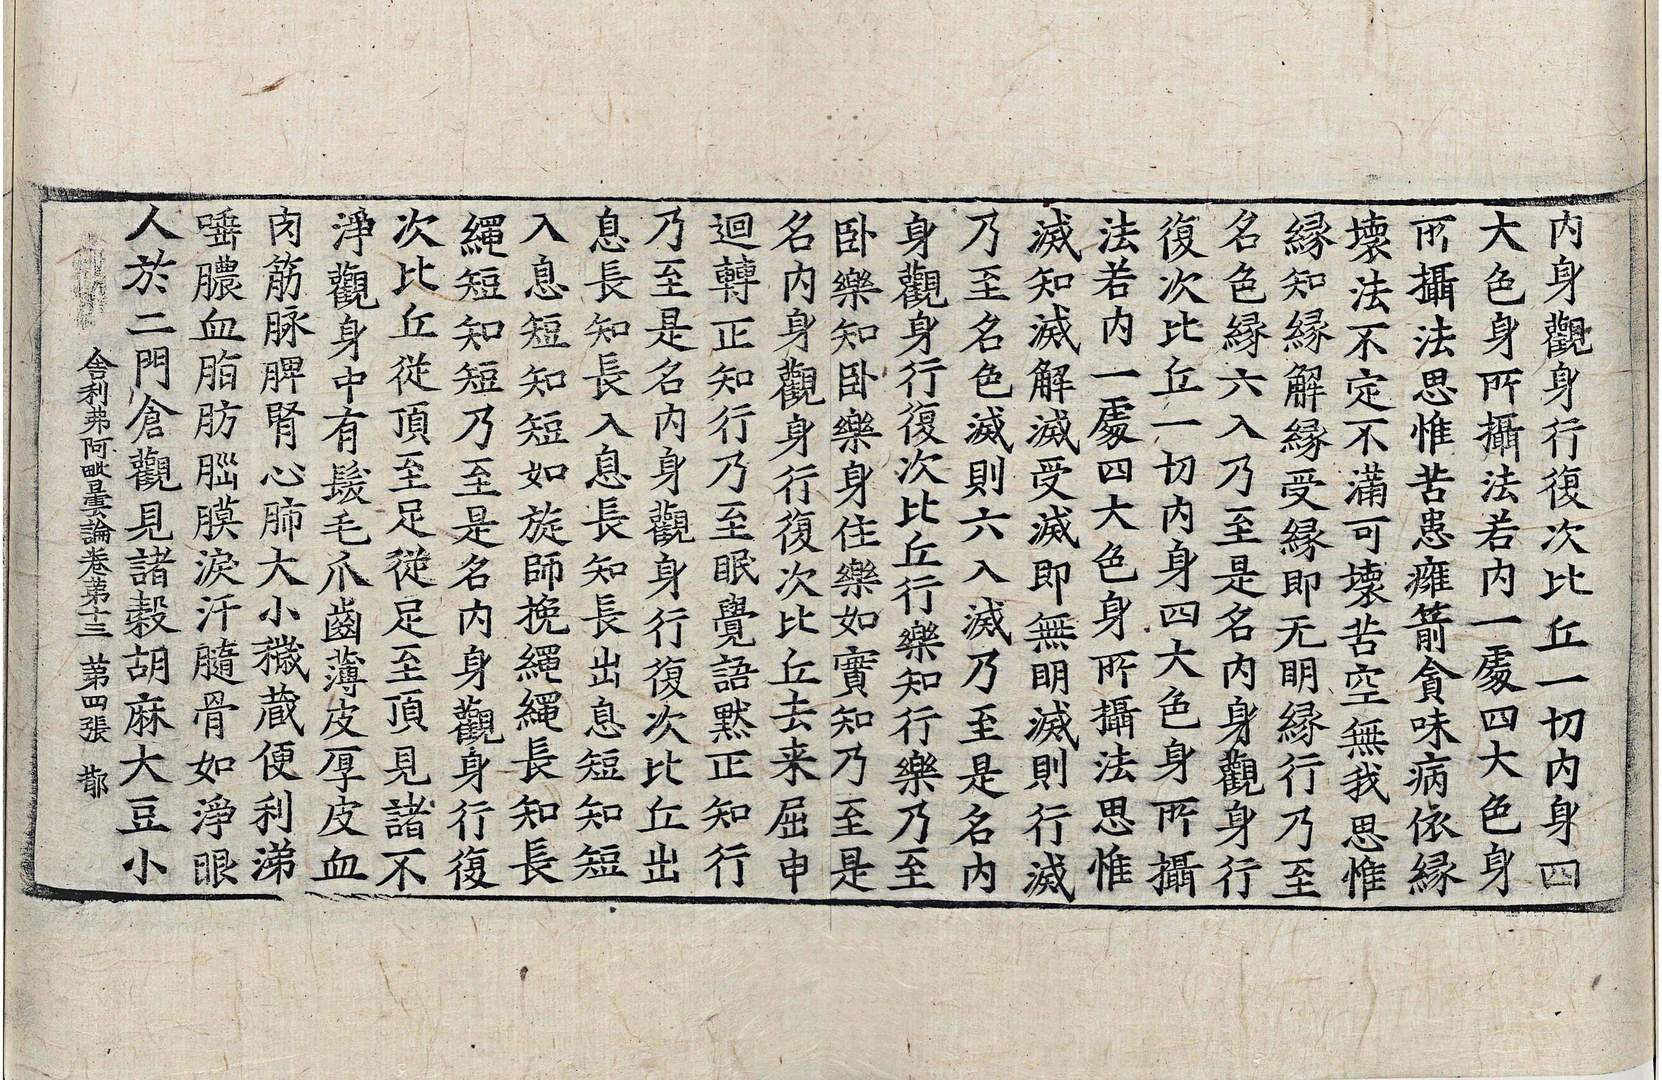 內身觀身行復次比丘一切內身四
大色身所攝法若內一處四大色身
所攝法思惟苦患癰箭貪味病依緣
壞法不定不滿可壞苦空無我思惟
緣知緣解緣受緣即无明緣行乃至
名色緣六入乃至是名內身觀身行
復次比丘一切內身四大色身所攝
法若內一處四大色身所攝法思惟
滅知滅解滅受滅即無明滅則行滅
乃至名色滅則六入滅乃至是名內
身觀身行復次比丘行樂知行樂乃至
卧樂知卧樂身住樂如實知乃至是
名內身觀身行復次比丘去来屈申
迴轉正知行乃至眠覺語默正知行
乃至是名內身觀身行復次比丘出
息長知長入息長知長出息短知短
入息短知短如旋師挽繩繩長知長
繩短知短乃至是名內身觀身行復
次比丘從頂至足從足至頂見諸不
淨觀身中有髮毛爪齒薄皮厚皮血
肉筋脉脾腎心肺大小穢蔵便利涕
唾膿血脂肪腦膜淚汗髓骨如淨眼
人於二門倉觀見諸穀胡麻大豆小
舎利弗阿毗曇論卷第十三 苐四張 鄁